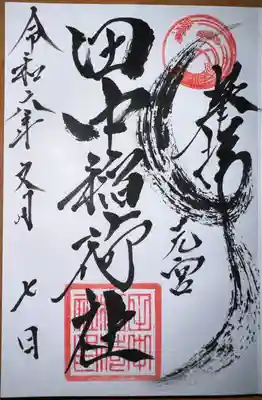 奉拝
元宮
田中稲荷社
令和六年五月七日